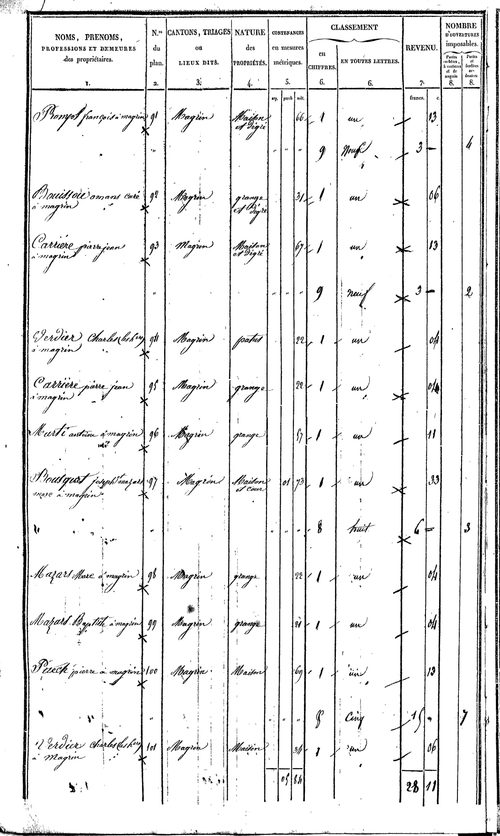 NOMS, PRÉNOMS, PROFESSIONS ET DEMEURES des propriétaires.
N.os du plan.
CANTONS, TRIAGES ou LIEUX DITS.
NATURE des PROPRIÉTÉS.
CONTENANCES en mesures métriques.
CLASSEMENT
en CHIFFRES.
EN TOUTES LETTRES.
REVENU.
NOMBRE D'OUVERTURES imposables.
1. 2. 3. 4. 5. 6. 6. 7. 8. 8.
arp. perch. mèt. francs. c.
françois à magrin 91 Magrin Maison et 66 1 un 13
9 Neuf 3 — 4
amans curé à magrin 92 Magrin grange et 31 1 un 06
Carrière pierre jean à magrin 93 Magrin Maison et 67 1 un 13
9 neuf 3 — 2
Verdier Charles à magrin 94 Magrin patus 22 1 un 04
Carrière pierre jean à magrin 95 Magrin grange 22 1 un 04
Marti antoine à magrin 96 Magrin grange 57 1 un 11
Bousquet joseph à magrin 97 Magrin Maison et cour 01 73 1 un 33
" 8 huit 6 — 3
Mazars Marc à magrin 98 Magrin grange 22 1 un 04
Mazars Baptiste à magrin 99 Magrin grange 21 1 un 04
Puech pierre à magrin 100 Magrin Maison 69 1 un 13
5 Cinq 15 " 7
Verdier Charles à Magrin 101 Magrin Maison 34 1 un 06
05 84 28 11